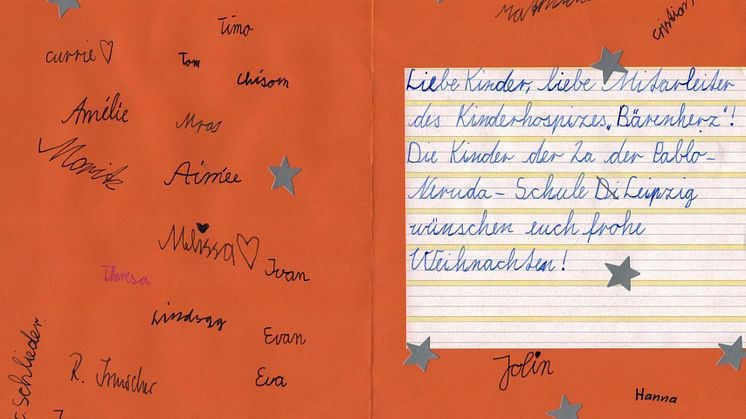 Timo
currie
Tom
Chisom
Amélie
Mras
Moritz
Aimée
Melissa
Ivan
Theresa
Lindsay
Evan
R. Irmscher
Eva
Schlieder
cristian
Liebe Kinder, liebe Mitarleiter
des Kinderhospizes „Bärenherz"!
Die Kinder der 2a der Pablo-
Neruda-Schule Leipzig
wünschen euch frohe
Weihnachten!
Jolin
Hanna